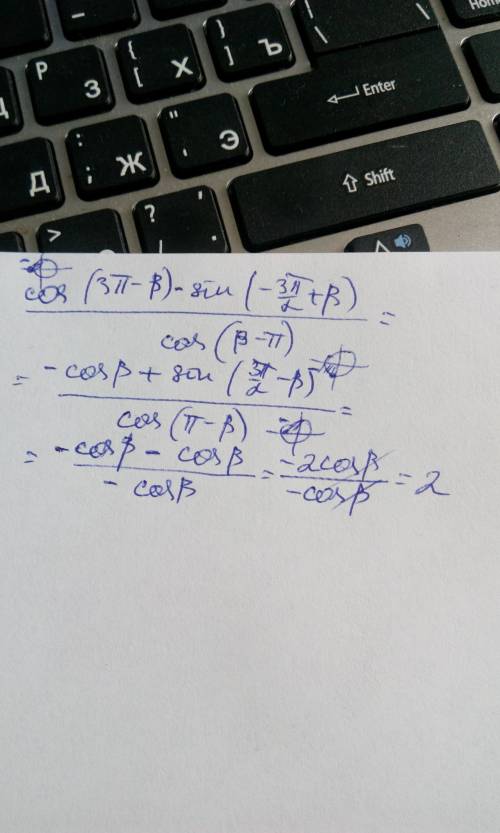 Home
P З
{ [ Х
} ] Ъ
| \ \
Enter
Д
: ; Ж
" ' Э
Shift
>
? / , .
cos (3π-β)-sin (-3π/2+β)
cos (β-π) =
= -cosβ + sin (3π/2-β)
cos (π-β) =
= -cosβ - cosβ / - cosβ = -2cosβ / -cosβ = 2